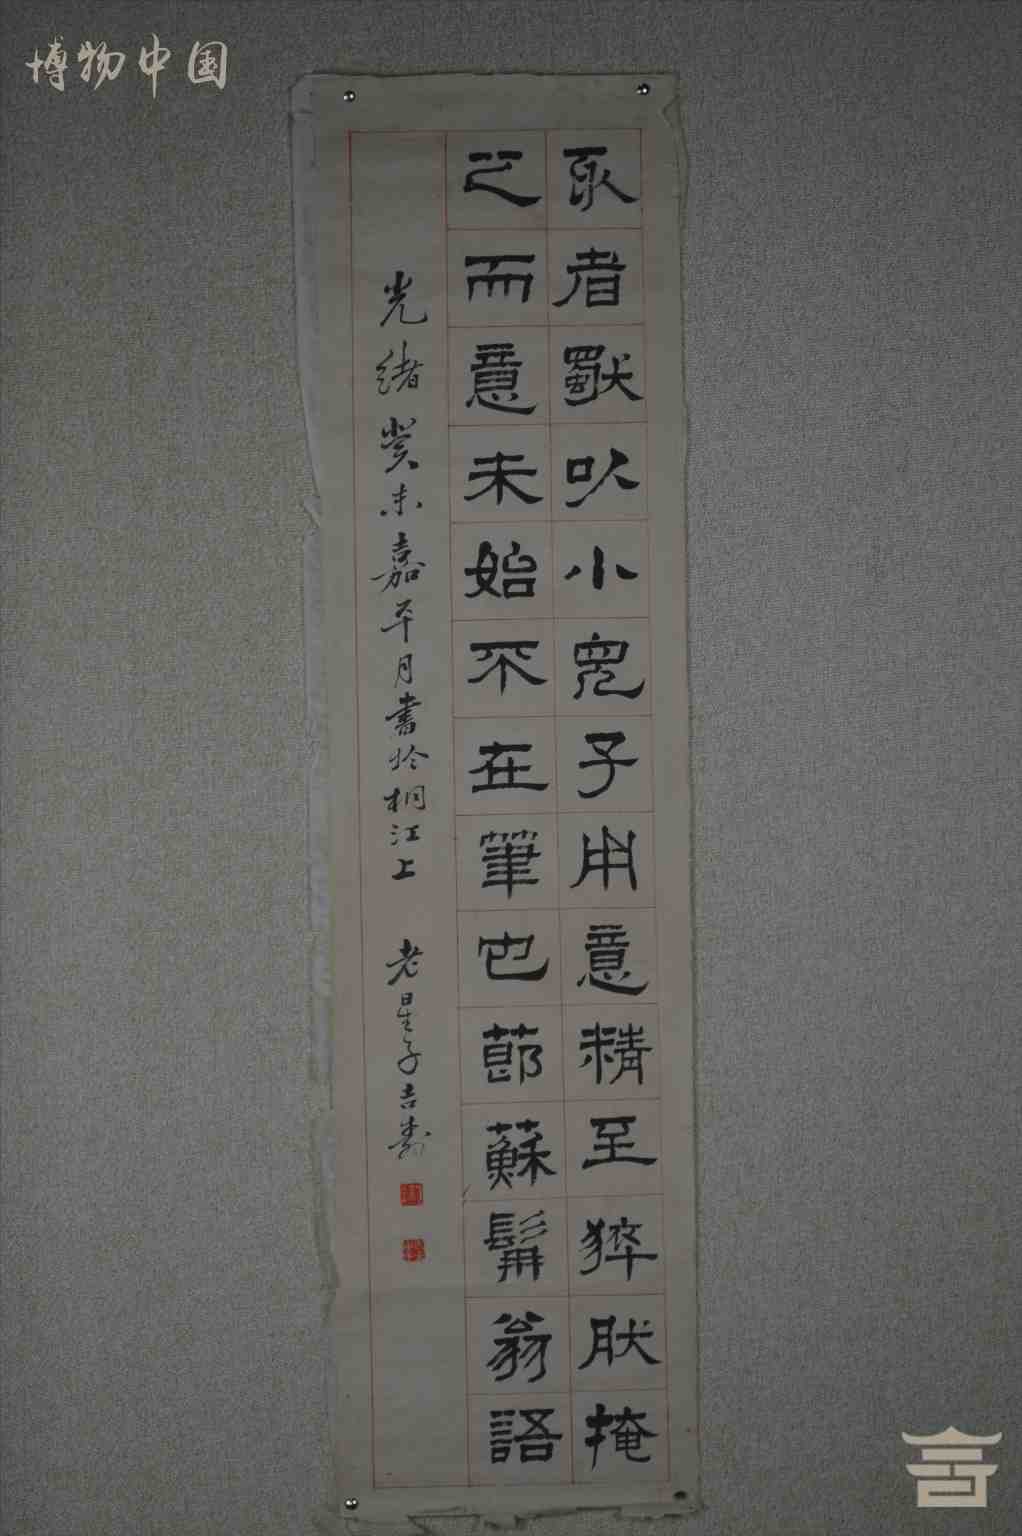 博物中国
取者獨以小兒子用意精至猝肰掩
之而意未始不在筆也節蘇髯翁語
光緒癸未嘉平月書於桐江上 老星子吉壽